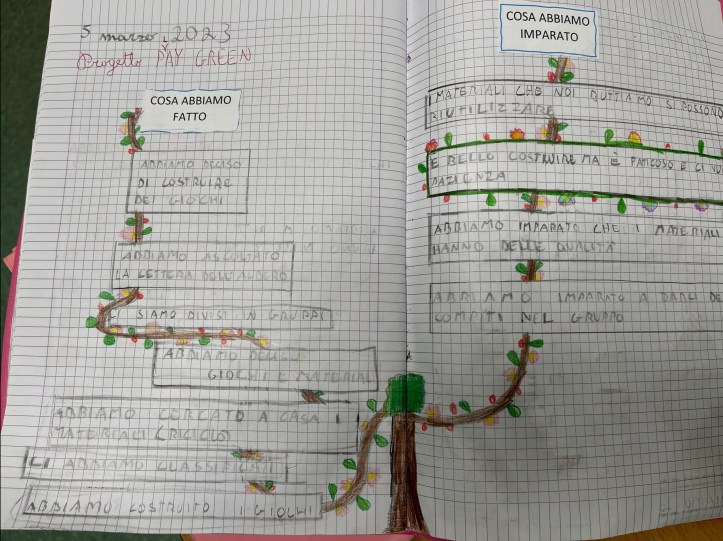 5 marzo, 2023
Progetto PAY GREEN
COSA ABBIAMO
FATTO
ABBIAMO DECISO
DI COSTRUIRE
DEI GIOCHI
ABBIAMO ASCOLTATO
LA LETTERA DELL'ALBERO
CI SIAMO DIVISI IN GRUPPI
ABBIAMO DECISO
GIOCHI E MATERIALI
ABBIAMO CERCATO A CASA I
MATERIALI (RICICLO)
LI ABBIAMO CLASSIFICATI
ABBIAMO COSTRUITO I GIOCHI
COSA ABBIAMO
IMPARATO
I MATERIALI CHE NOI BUTTIAMO SI POSSONO
RIUTILIZZARE
E BELLO COSTRUIRE MA E FATICOSO E CI VU
PAZIENZA
ABBIAMO IMPARATO CHE I MATERIALI
HANNO DELLE QUALITÀ
ABBIAMO IMPARATO A DARCI DE
COMPITI NEL GRUPPO